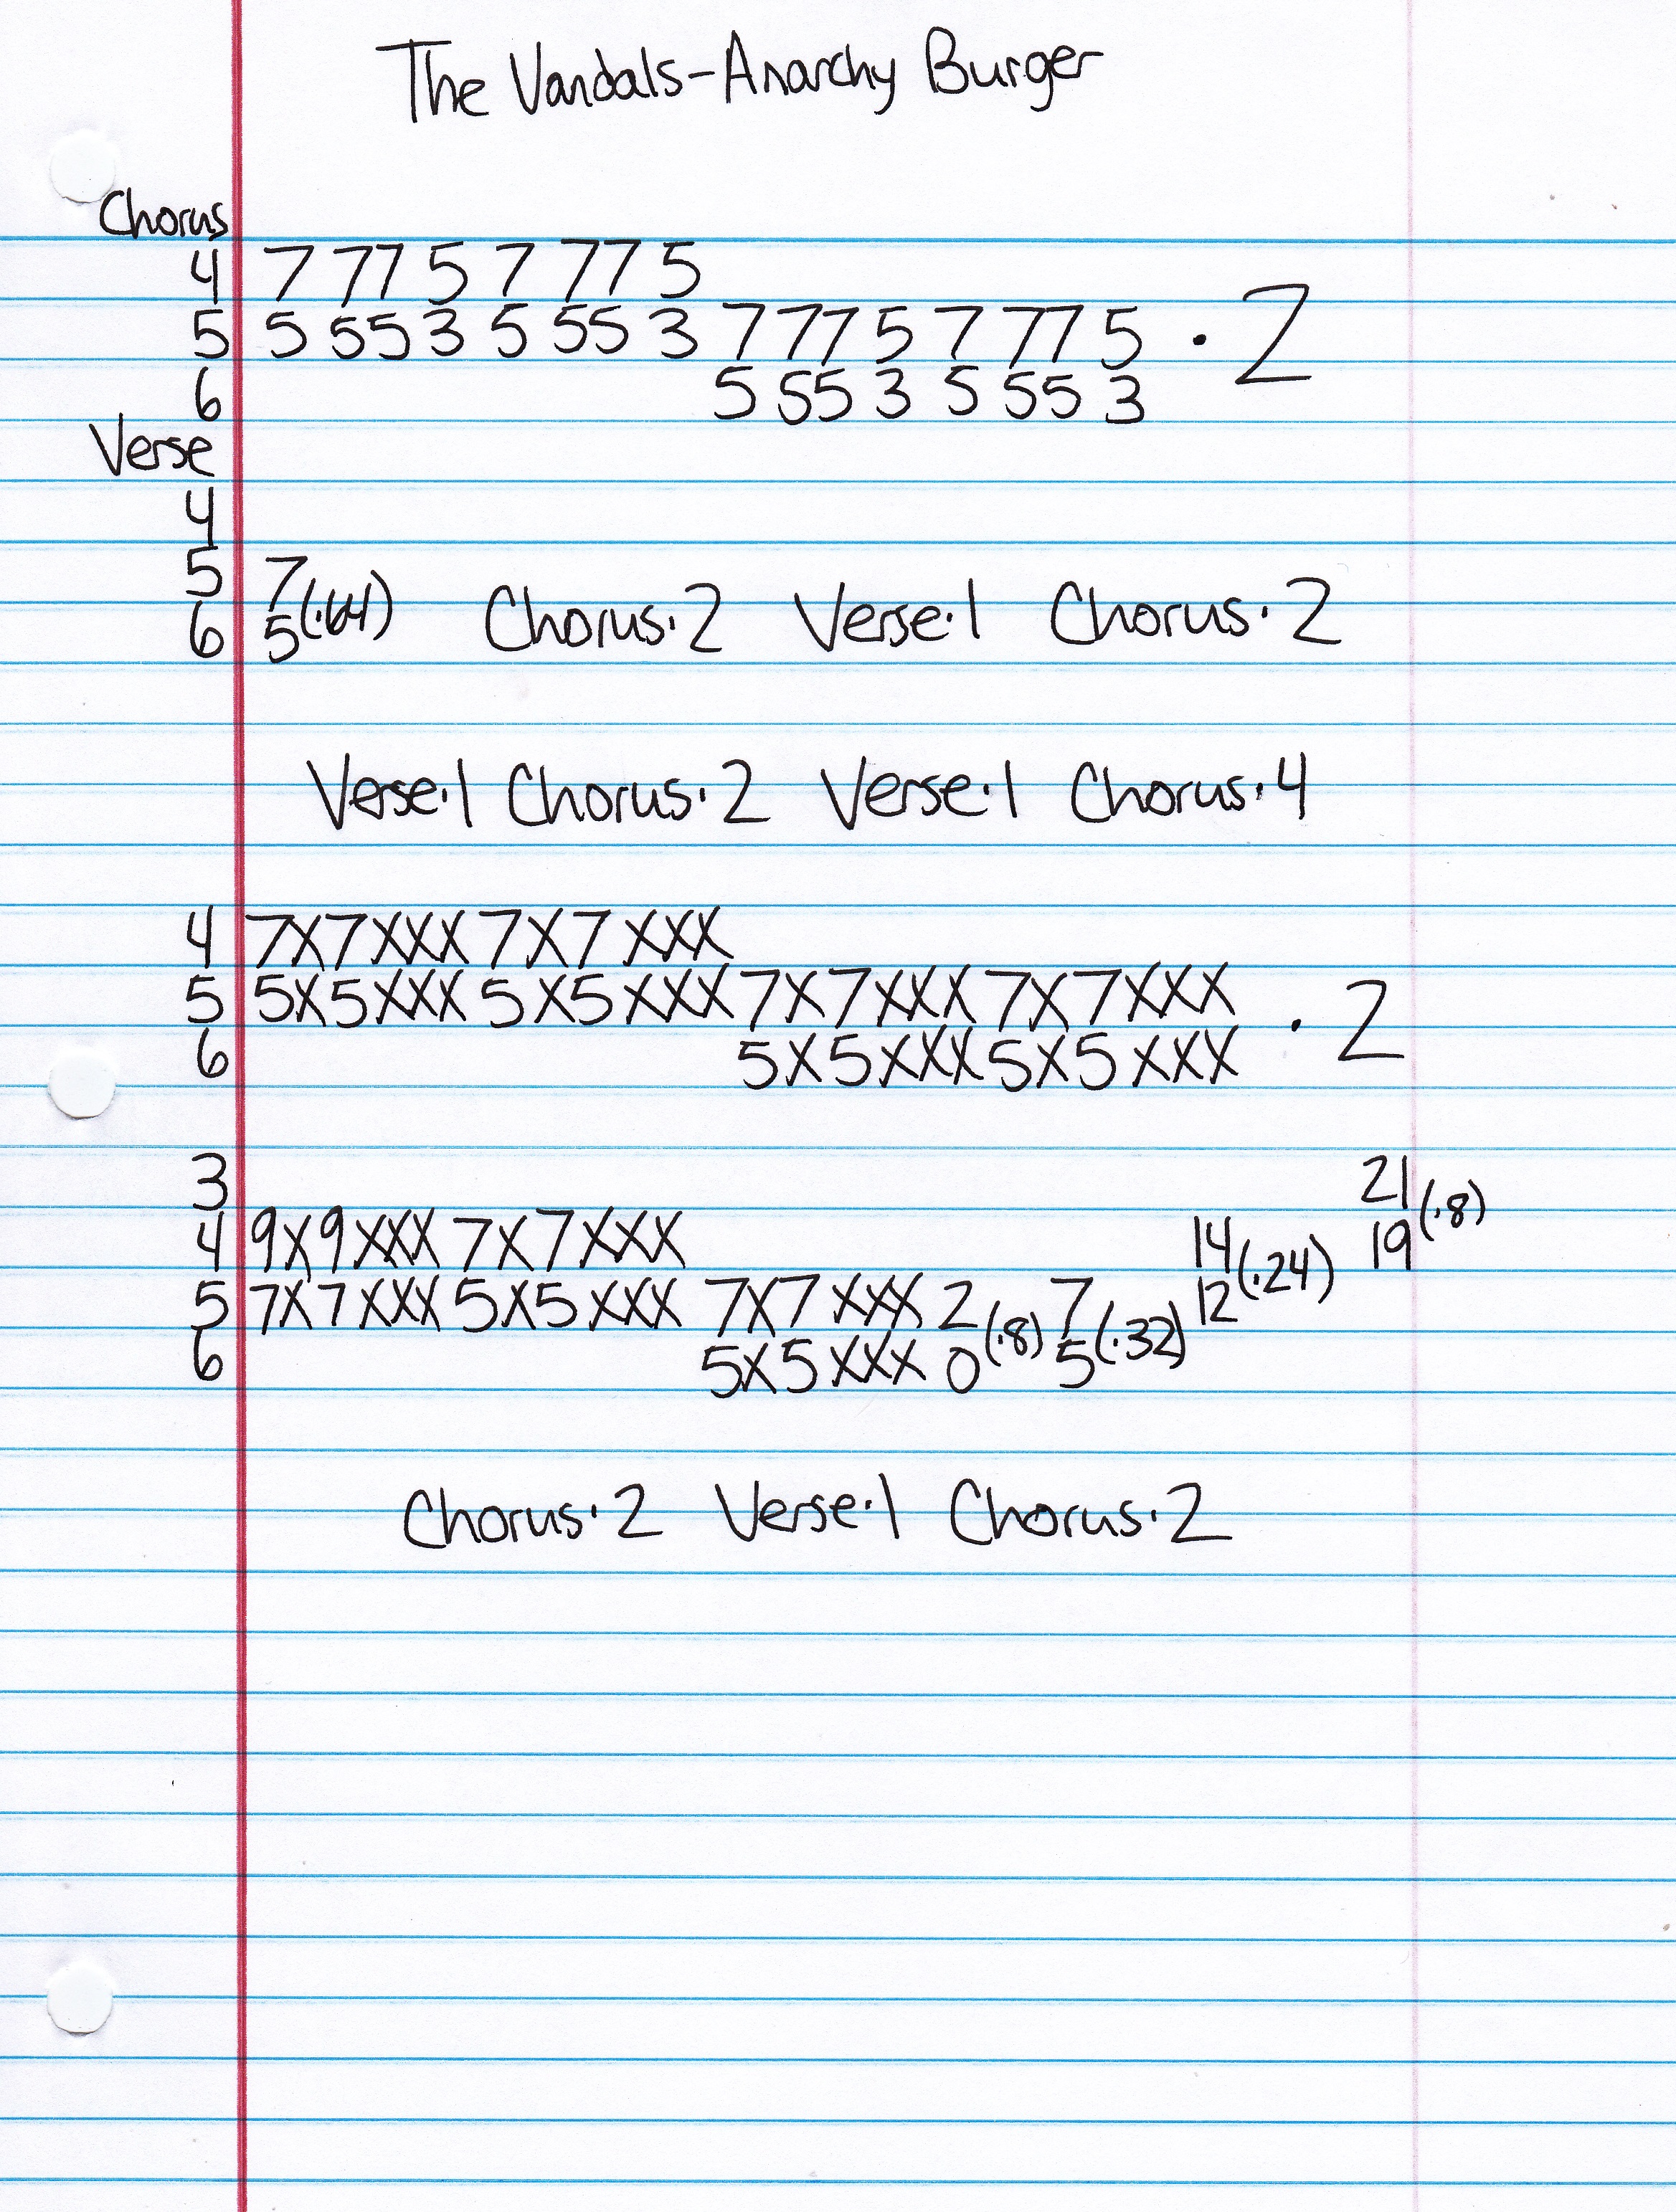 The Vandals-Anarchy Burger
Chorus
4 7 77 5 7 77 5
5 5 55 3 5 55 3 7 77 5 7 77 5 · 2
6 5 55 3 5 55 3
Verse
4
5 7
6 5(·64) Chorus·2 Verse·1 Chorus·2
Verse·1 Chorus·2 Verse·1 Chorus·4
4 7X7XXX 7X7XXX
5 5X5XXX 5X5XXX 7X7XXX 7X7XXX · 2
6 5X5XXX 5X5XXX
3 21(·8)
4 9X9XXX 7X7XXX 14(·24) 19
5 7X7XXX 5X5XXX 7X7XXX 2 7 12
6 5X5XXX 0(·8) 5(·32)
Chorus·2 Verse·1 Chorus·2